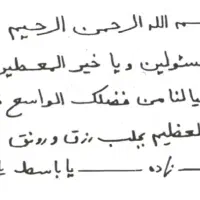 سم الله الرحمن الرحيم
مسئولين ويا خير المعطير
يالنا من فضلك الواسع
لعظيم بجلب رزق ورونق
زاده ــــــ يا باسط يا